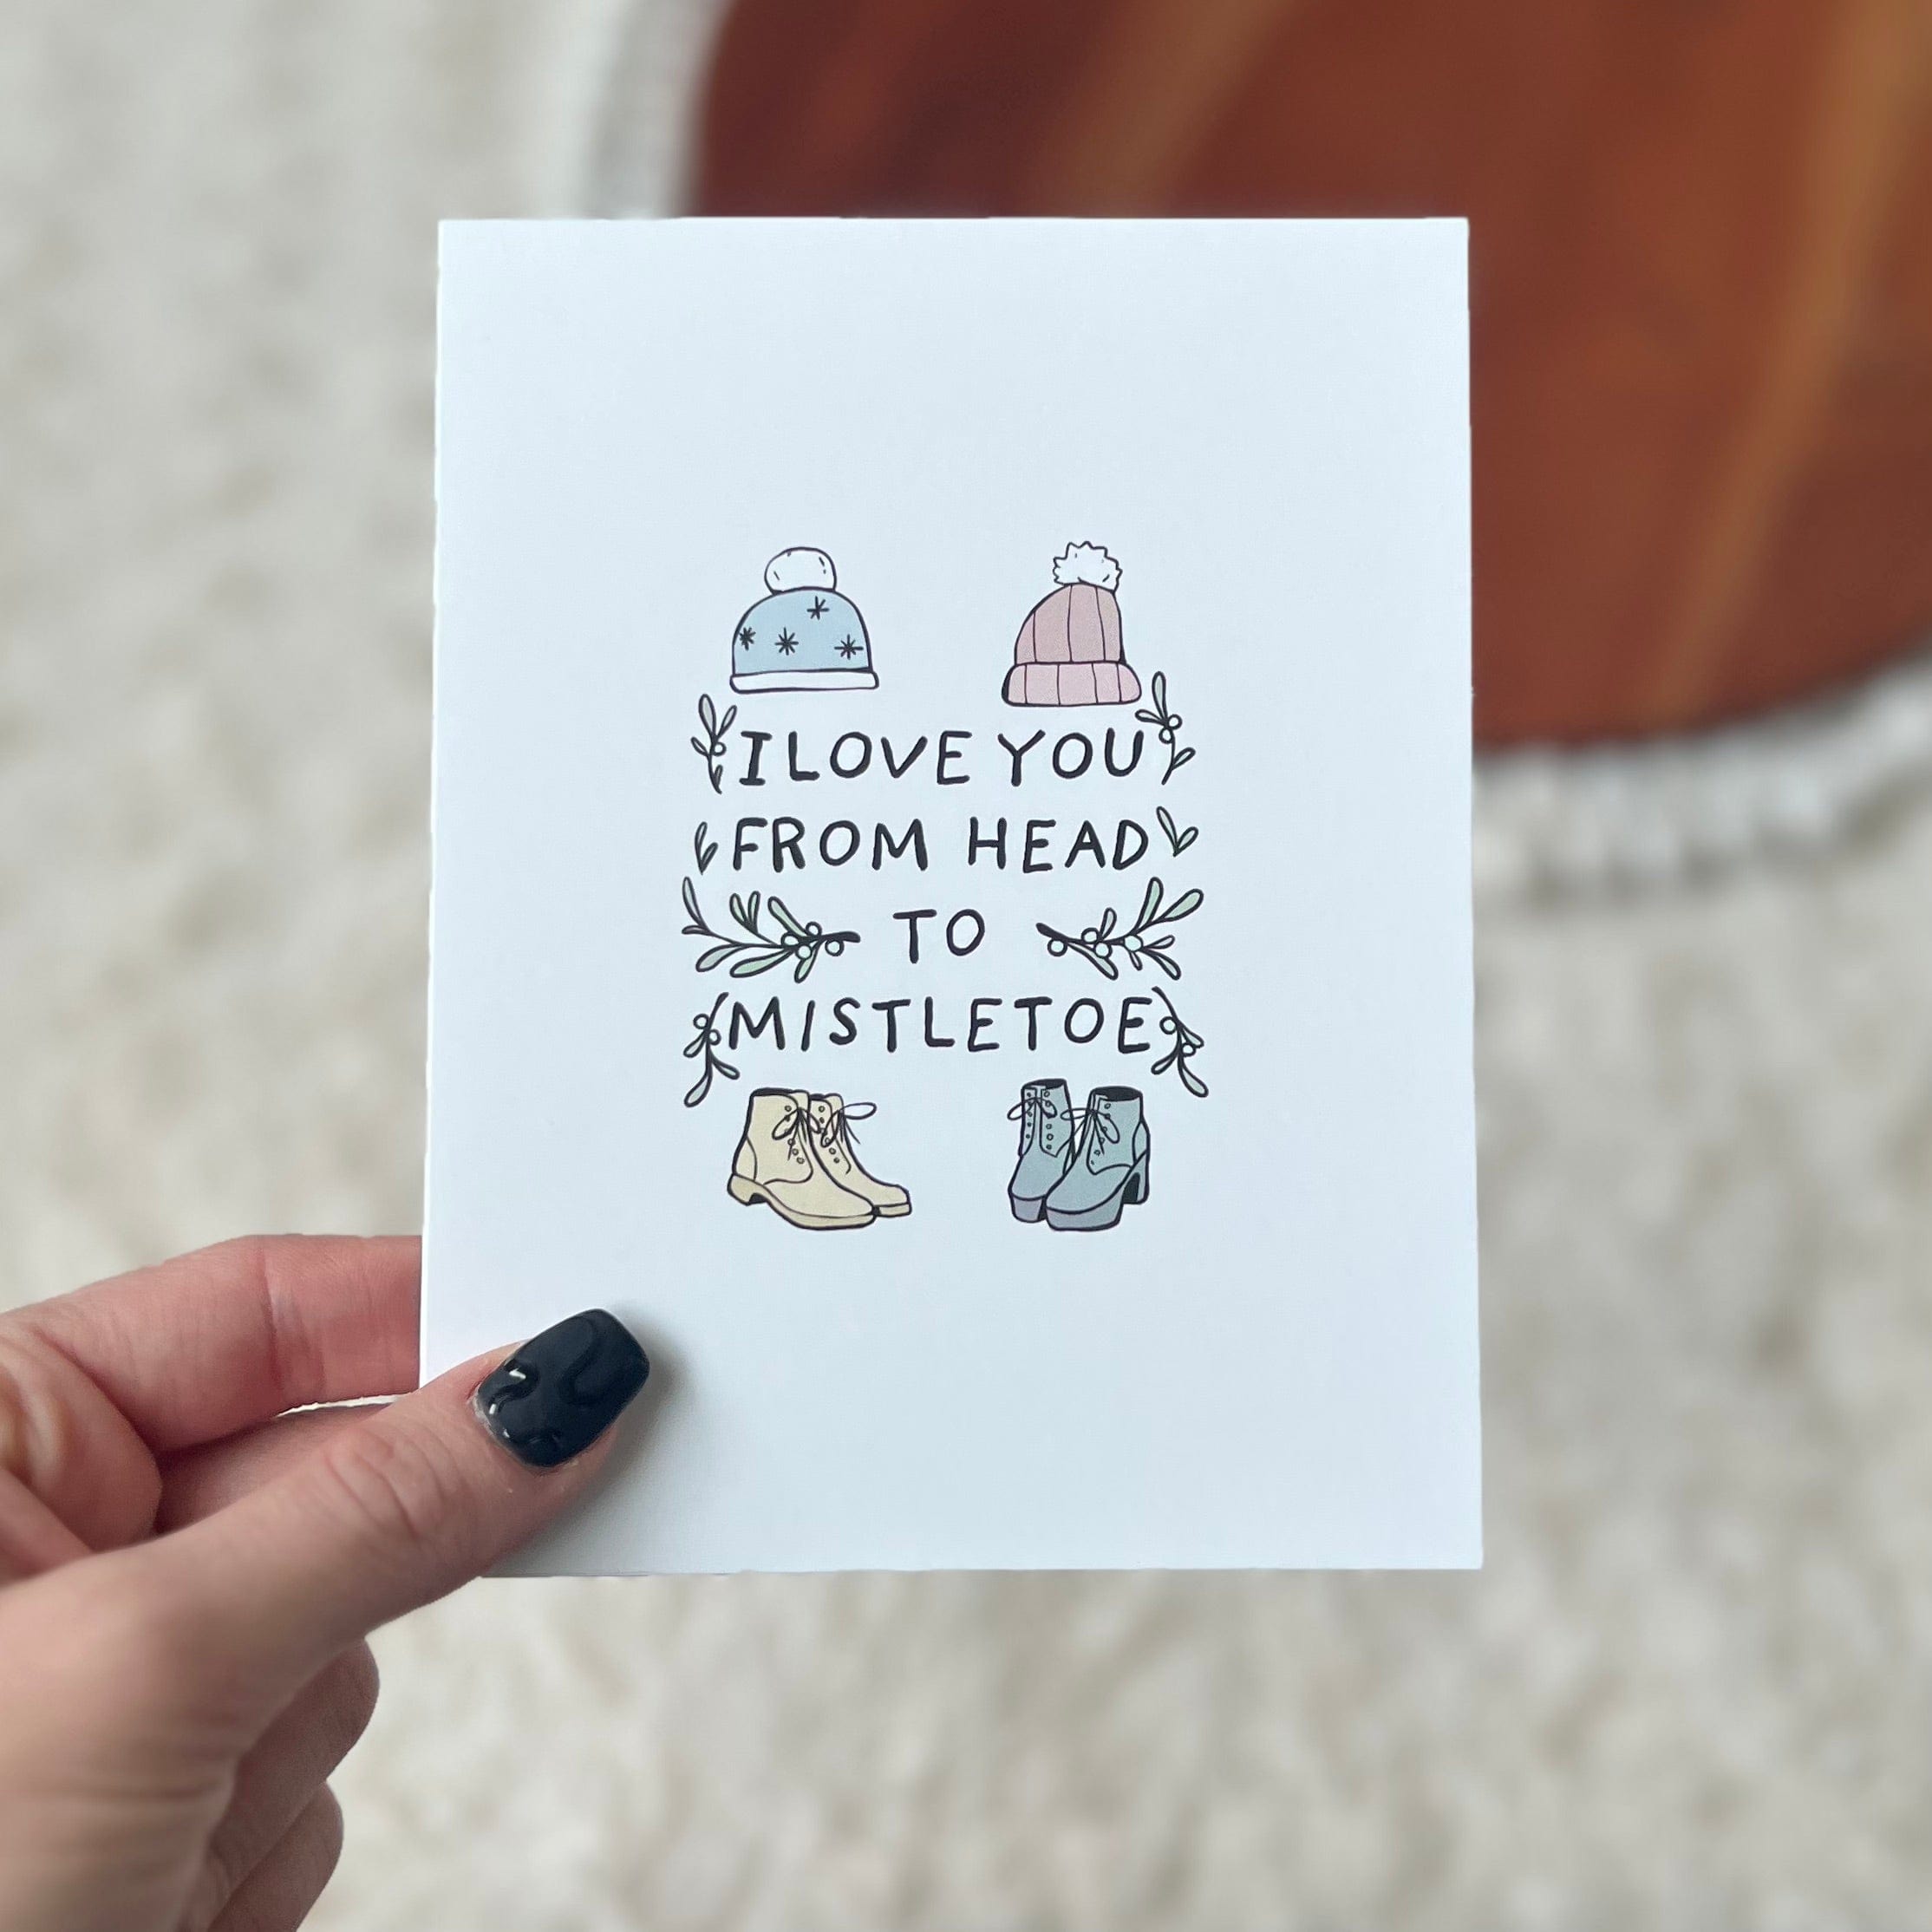 I LOVE YOU
FROM HEAD
TO
MISTLETOE